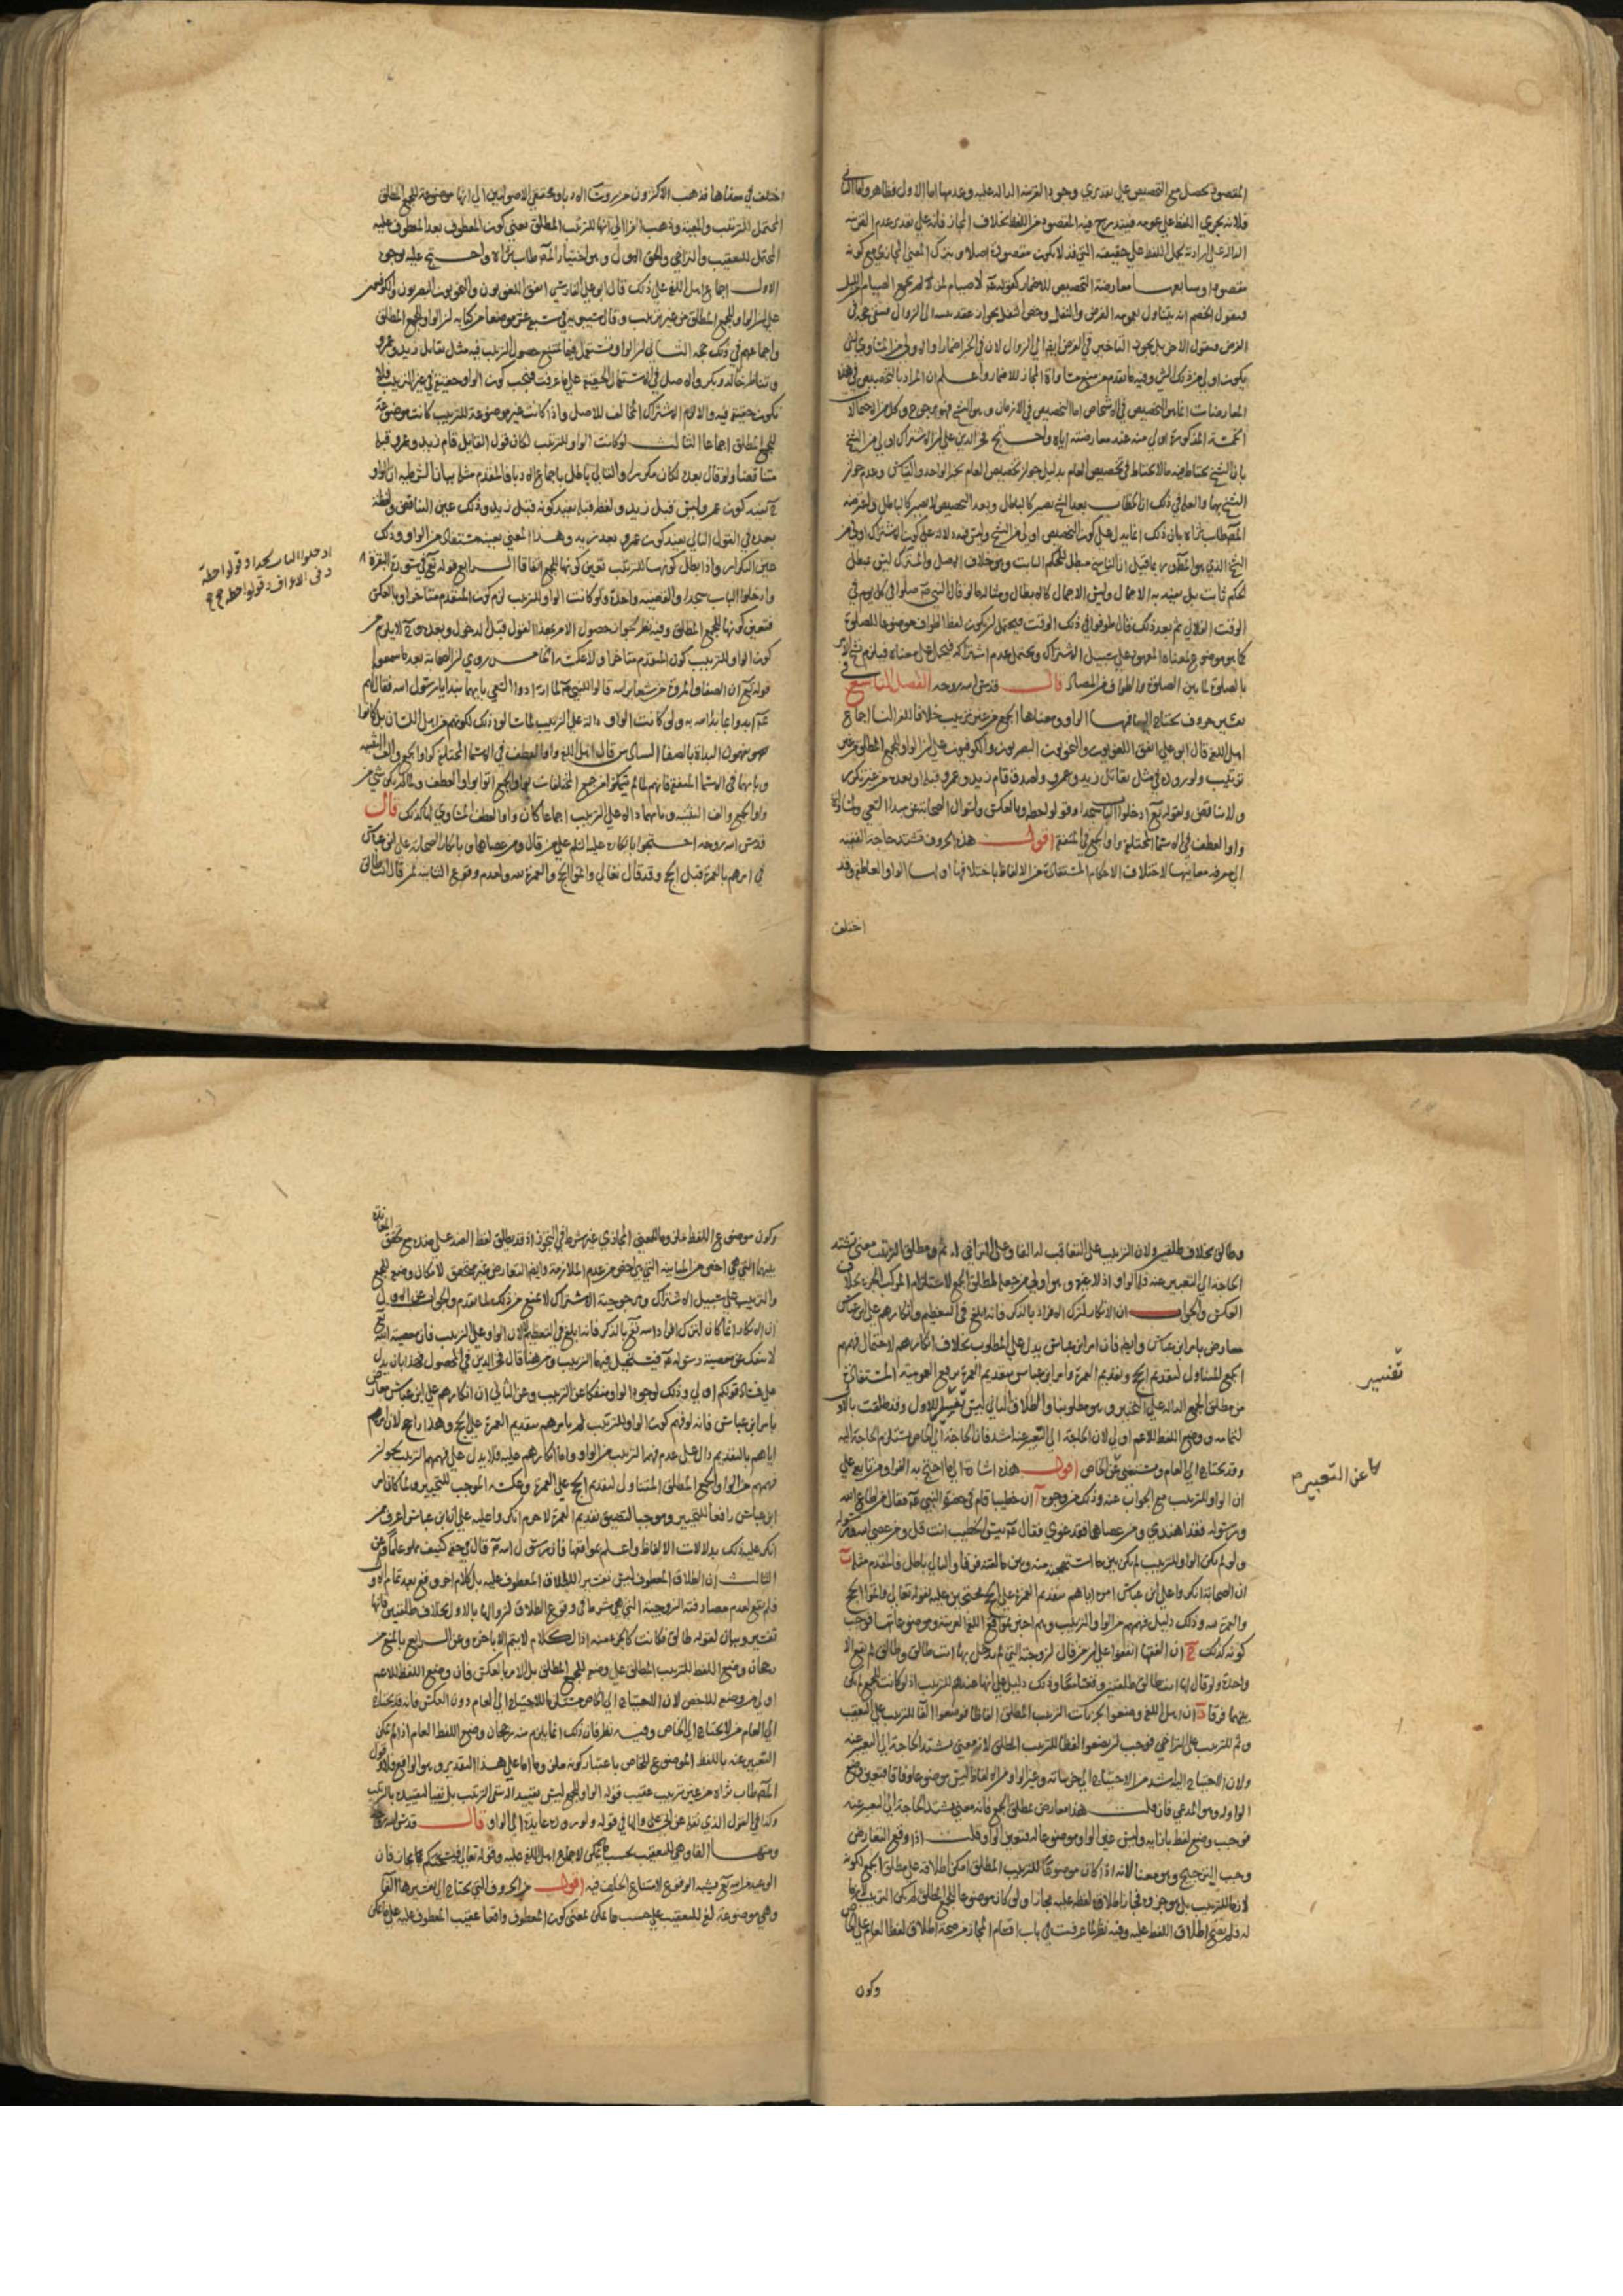 المقصود يحصل مع التخصيص على تقديري وجود القرينة الدالة عليه وعدمها اما الاول فظاهر واما الثاني
فلانه يجري اللفظ على عمومه فيندرج فيه المقصود من اللفظ بخلاف المجاز فانه على تقدير عدم القرينة
الدالة على ارادته يحمل اللفظ على حقيقته التي قد لا يكون مقصودة اصلا و يترك المعنى المجازي مع كونه
مقصودا وسابعها معارضة التخصيص للاضمار كقوله عم لا صيام لمن لم يجمع الصيام من الليل
فيقول الخصم انه يتناول بعمومه الفرض والنفل وخص النفل بجواز عقد نيته الى الزوال فيبقى حجة في
الفرض فيقول الاخر بل يجوز التاخير في الفرض ايضا الى الزوال لان في الخبر اضمارا
يكون اولى من ذلك الشي وفيه ما تقدم من منع مساواة المجاز للاضمار واعلم ان المراد بالتخصيص في هذه
المعارضات انما هو التخصيص في الاشخاص اما التخصيص في الازمان وهو النسخ فهو مرجوح وكل من الاحتمالات
الخمسة المذكورة اولى منه عند معارضته اياه واحتج فخر الدين على ان الاشتراك اولى من النسخ
بان النسخ يحتاط فيه ما لا يحتاط في تخصيص العام بدليل جواز تخصيص العام بخبر الواحد والقياس وعدم جواز
النسخ بهما والعلة في ذلك ان الخطاب بعد النسخ يصير كالباطل وبعد التخصيص لا يصير كالباطل واعترضه
المصطاب ثراه بان ذلك انما يدل على كون التخصيص اولى من النسخ وليس فيه دلالة على كون الاشتراك اولى من
النسخ الذي هو المطلوب وربما قيل ان الناسخ مبطل للحكم الثابت وهو خلاف الاصل والمشترك ليس بمبطل
لحكم ثابت بل يفيد به الاجمال وليس الاجمال كالابطال ومثاله ما لو قال النبي عم صلوا في كل يوم في
الوقت الفلاني ثم بعد ذلك قال طوفوا في ذلك الوقت فيحتمل ان يكون لفظ الطواف موضوعا للصلوة
كما هو موضوع لمعناه المعهود على سبيل الاشتراك ويحتمل عدم اشتراكه فيحمل على معناه فيلزم نسخ الامر
بالصلوة لما بين الصلوة والطواف من المضاد قال قدس الله روحه الفصل التاسع في
تفسير حروف يحتاج اليها فمنها الواو ومعناها الجمع من غير ترتيب خلافا للفراء لنا اجماع
اهل اللغة قال ابو علي اتفق اللغويون والنحويون البصريون والكوفيون على ان الواو للجمع المطلق من غير
ترتيب ولوروده في مثل تقاتل زيد وعمرو ولصدق قام زيد وعمرو قبله او بعده من غير تكرير
ولا تناقض ولقوله تع ادخلوا الباب سجدا وقولوا حطة وبالعكس ولسوال الصحابة عن مبدا السعي ولتساوي
واو العطف في الاسماء المختلفة واو الجمع في المتفقة اقول هذه الحروف تشتد حاجة الفقيه
الى معرفة معانيها لاختلاف الاحكام المستفادة من الالفاظ باختلافها اولها الواو العاطفة وقد
اختلف
اختلف في معناها فذهب الاكثرون من الادباء ومحققي الاصوليين الى انها موضوعة للجمع المطلق
المحتمل للترتيب والمعية وذهب الفراء الى انها للترتيب المطلق بمعنى كون المعطوف بعد المعطوف عليه
المحتمل للتعقيب والتراخي والحق الاول وهو اختيار المصطاب ثراه واحتج عليه بوجوه
الاول اجماع اهل اللغة على ذلك قال ابو علي الفارسي اتفق اللغويون والنحويون البصريون والكوفيون
على ان الواو للجمع المطلق من غير ترتيب وقال سيبويه في سبعة عشر موضعا من كتابه ان الواو للجمع المطلق
واجماعهم في ذلك حجة الثاني ان الواو تستعمل فيما يمتنع حصول الترتيب فيه مثل تقاتل زيد وعمرو
وتناظر خالد وبكر والاصل في الاستعمال الحقيقة على ما عرفت فيجب كون الواو حقيقة في غير الترتيب فلا
يكون حقيقة فيه والا لزم الاشتراك المخالف للاصل واذا كانت غير موضوعة للترتيب كانت موضوعة
للجمع المطلق اجماعا الثالث لو كانت الواو للترتيب لكان قول القايل قام زيد وعمرو قبله
متناقضا ولو قال بعده لكان مكررا والتالي باطل باجماع الادباء فالمقدم مثله بيان الشرطية ان الواو
ح تفيد كون عمرو ليس قبل زيد ولفظ قبله يفيد كونه قبل زيد وذلك عين التناقض ولفظة
بعده في القول الثاني يفيد كون عمرو بعد زيد وهذا المعنى بعينه مستفاد من الواو وذلك
عين التكرار واذا بطل كونها للترتيب تعين كونها للجمع اتفاقا الرابع قوله تع في سورة البقرة
وادخلوا الباب سجدا والقضية واحدة ولو كانت الواو للترتيب لزم كون المتقدم متاخرا وبالعكس
فتعين كونها للجمع المطلق وفيه نظر لجواز حصول الامر بهذا القول قبل الدخول وبعده وح لا يلزم من
كون الواو للترتيب كون المتقدم متاخرا ولا عكسه الخامس روي ان الصحابة بعد ما سمعوا
قوله تع ان الصفا والمروة من شعاير الله قالوا للنبي عم لما ارادوا السعي بايهما نبدا يا رسول الله فقال لهم
عم ابدوا بما بدا الله به ولو كانت الواو دالة على الترتيب لما سالوه ذلك لكونهم من اهل اللسان بل كانوا
يفهمون البداة بالصفا السادس قال اهل اللغة واو العطف في الاسماء المختلفة كواو الجمع والف التثنية
وياؤهما في الاسماء المتفقة فانهم لما لم يتمكنوا من جمع المختلفات بواو الجمع اتوا بواو العطف
واو الجمع والف التثنية وياؤهما دالة على الترتيب اجماعا كان واو العطف المساوي لها كذلك قال
قدس الله روحه احتجوا بانكاره عليه السلم على من قال ومن عصاهما وبانكار الصحابة على ابن عباس
في امرهم بالعمرة قبل الحج وقد قال تعالى واتموا الحج والعمرة لله ولعدم وقوع الثانية لمن قال انت طالق
ادخلوا الباب سجدا وقولوا حطة
وفي الاعراف وقولوا حطة
وطالق بخلاف طلقتين ولان الترتيب على التعاقب له الفاء وعلى التراخي له ثم ومطلق الترتيب معنى تشتد
الحاجة الى التعبير عنه فله الواو اذ لا غيره وهو اولى من جعلها لمطلق الجمع لاستلزام المركب الجزء بخلاف
العكس والجواب ان الانكار لترك الافراد بالذكر فانه ابلغ في التعظيم وانكارهم على ابن عباس
معارض بامر ابن عباس وايضا فان امر ابن عباس يدل على المطلوب بخلاف انكارهم لاحتمال فهمهم
الجمع المتناول لتقديم الحج وتقديم العمرة وامر ابن عباس بتقديم العمرة يرفع العمومية المستفادة
من مطلق الجمع الدالة على التخيير وهو مطلوبنا والطلاق الثاني ليس تفسيرا للاول وقد طلقت بالاول
لتمامه ووضع اللفظ للاعم اولى لان الحاجة الى التعبير عنه اشد فان الحاجة الى الخاص يستلزم الحاجة اليه
وقد يحتاج الى العام ويستغنى عن الخاص اقول هذه اشارة الى ما احتج به الفراء ومن تابعه على
ان الواو للترتيب مع الجواب عنه وذلك من وجوه ا ان خطيبا قام في حضرة النبي عم فقال من اطاع الله
ورسوله فقد اهتدى ومن عصاهما فقد غوى فقال عم بئس الخطيب انت قل ومن عصى الله ورسوله
ولو لم يكن الواو للترتيب لم يكن بين ما استهجنه منه وبين ما لقنه فرق والتالي باطل فالمقدم مثله ب
ان الصحابة انكروا على ابن عباس امره اياهم بتقديم العمرة على الحج محتجين عليه بقوله تعالى واتموا الحج
والعمرة لله وذلك دليل فهمهم من الواو الترتيب وهم اخبر بمواقع اللغة العربية وموضوعاتها فوجب
كونه كذلك ج ان الفقهاء اتفقوا على ان من قال لزوجته التي لم يدخل بها انت طالق وطالق لم يقع الا
واحدة ولو قال لها انت طالق طلقتين وقعتا معا وذلك دليل على انها عندهم للترتيب اذ لو كانت للجمع لم يكن
بينهما فرقا د ان اهل اللغة وضعوا لجزئيات الترتيب المطلق الفاظا فوضعوا الفاء للترتيب على التعقيب
وثم للترتيب على التراخي فوجب ان يضعوا لفظا للترتيب المطلق لانه معنى تشتد الحاجة الى التعبير عنه
ولان الاحتياج اليه اشد من الاحتياج الى جزئياته وغير الواو من الالفاظ ليس موضوعا له وفاقا فتعين وضع
الواو له وهو المدعى فان قلت هذا معارض بمطلق الجمع فانه معنى تشتد الحاجة الى التعبير عنه
فوجب وضع لفظ بازائه وليس غير الواو موضوعا له فتعين الواو قلت اذا وقع التعارض
وجب الترجيح وهو معنا لانه اذا كان موضوعا للترتيب المطلق امكن اطلاقه على مطلق الجمع لكونه
لازما للترتيب بل هو جزوه فجاز اطلاق لفظه عليه مجازا ولو كان موضوعا للجمع المطلق لم يكن الترتيب لازما
له فلم يصح اطلاق اللفظ عليه وفيه نظر لما عرفت في باب اقسام المجاز من صحة اطلاق لفظ العام على الخاص
وكون
تفسير
عن التعبير
وكون موضوع اللفظ ملزوما للمعنى المجازي غير شرط في التجوز اذ قد يطلق لفظ الضد على ضده مع تحقق المعاندة
بينهما التي هي اخص من المباينة التي هي اخص من عدم الملازمة وايضا التعارض غير متحقق لامكان وضعه للجمع
والترتيب على سبيل الاشتراك ومرجوحية الاشتراك لا تمنع من ذلك لما تقدم والجواب عن الاول
ان الانكار انما كان لترك افراد اسمه تع بالذكر فانه ابلغ في التعظيم لا لان الواو على الترتيب فان معصية الله تع
لا تنفك عن معصية رسوله عم فيستحيل فيها الترتيب ومن هنا قال فخر الدين في المحصول فهذا بان يدل
على فساد قولكم اولى وذلك لوجود الواو منفكا عن الترتيب وعن الثاني ان انكارهم على ابن عباس معارض
بامر ابن عباس فانه لو فهم كون الواو للترتيب لم يامرهم بتقديم العمرة على الحج وهذا راجح لان امرهم
اياهم بالتقديم دال على عدم فهمه الترتيب من الواو واما انكارهم عليه فلا يدل على فهمهم الترتيب لجواز
فهمهم من الواو الجمع المطلق المتناول لتقديم الحج على العمرة وعكسه الموجب للتخيير ولما كان امر
ابن عباس رافعا للتخيير وموجبا لتضييق تقديم العمرة لا جرم انكروا عليه على ان ابن عباس اعرف ممن
انكر عليه ذلك بدلالات الالفاظ واعلم بمواقعها فان رسول الله عم قال في حقه كنيف ملئ علما وعن
الثالث ان الطلاق المعطوف ليس تفسيرا للطلاق المعطوف عليه بل كلام اخر وقع بعد تمام الاول
فلم يقع لعدم مصادفته الزوجية التي هي شرط في وقوع الطلاق لزوالها بالاول بخلاف طلقتين فانها
تفسير وبيان لقوله طالق فكانت كالجزء منه اذ الكلام لا يتم الا باخره وعن الرابع بالمنع من
رجحان وضع اللفظ للترتيب المطلق على وضعه للجمع المطلق بل الامر بالعكس فان وضع اللفظ للاعم
اولى من وضعه للاخص لان الاحتياج الى الخاص مستلزم للاحتياج الى العام دون العكس فانه قد يحتاج
الى العام من لا يحتاج الى الخاص وفيه نظر فان ذلك انما يلزم منه رجحان وضع اللفظ للعام اذا لم يمكن
التعبير عنه باللفظ الموضوع للخاص باعتبار كونه ملزوما اما على هذا التقدير وهو الواقع فلا وقول
المصطاب ثراه من غير ترتيب عقيب قوله الواو للجمع ليس تقييدا له بنفي الترتيب بل نفيا لتقييده بالترتيب
وكذا في القول الذي نقله عن ابي علي والهاء في قوله ولوروده عايدة الى الواو قال قدس الله روحه
ومنها الفاء وهي للتعقيب بحسب ما يمكن لاجماع اهل اللغة عليه وقوله تعالى فيسحتكم مجاز فان
الوعيد من الله تع يشبه الوقوع لامتناع الخلف فيه اقول من الحروف التي يحتاج الى تفسيرها الفاء
وهي موضوعة لغة للتعقيب على حسب ما يمكن بمعنى كون المعطوف واقعا عقيب المعطوف عليه على ما يمكن